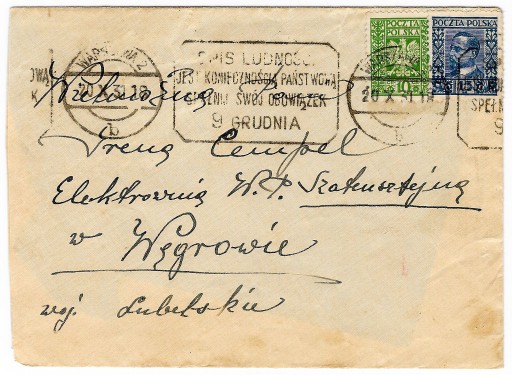 POCZTA POLSKA
10
POCZTA POLSKA
15
WARSZAWA 2
20.X.31.18
b
SPIS LUDNOŚCI
JEST KONIECZNOŚCIĄ PAŃSTWOWĄ
SPEŁNIJ SWÓJ OBOWIĄZEK
9 GRUDNIA
WARSZAWA
20.X.31.18
b
OWĄ
K
SPEŁN
9
Irena Cempel
Elektrownia W.P.
w Węgrowie
woj. Lubelskie